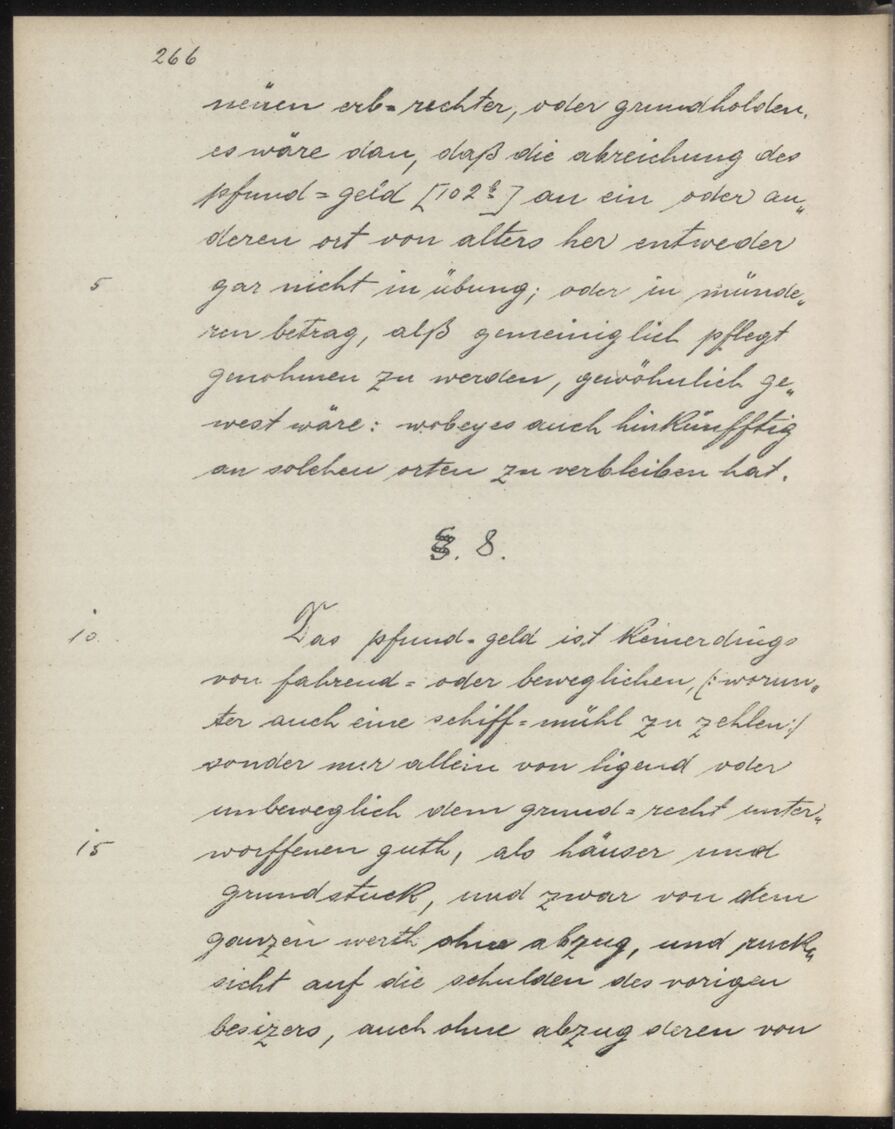 266
neüen erb=rechter, oder grundholden,
es wäre dan, daß die abreichung des
pfund=geld [102b] an ein oder an„
deren ort von alters her entweder
5 gar nicht in übung; oder in münde„
ren betrag, alß gemeiniglich pflegt
genohmen zu werden, gewöhnlich ge„
west wäre: wobey es auch hinkünfftig
an solchen orten zu verbleiben hat.
§. 8.
10 Das pfund=geld ist keinerdings
von fahrend= oder beweglichen, (:worun„
ter auch eine schiff=mühl zu zehlen:)
sonder nur allein von ligend oder
unbeweglich dem grund=recht unter„
15 worffenen guth, als häuser und
grundstuck, und zwar von dem
ganzen werth ohne abzug, und ruck„
sicht auf die schulden des vorigen
besizers, auch ohne abzug deren von